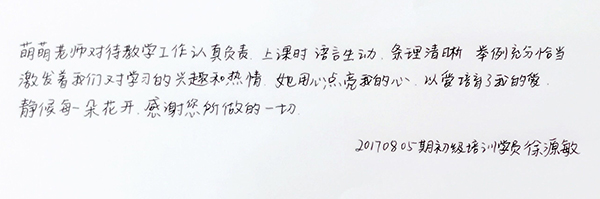 萌萌老师对待教学工作认真负责.上课时语言生动.条理清晰 举例充分恰当
激发着我们对学习的兴趣和热情.她用心点亮我的心.以爱培育了我的爱.
静候每一朵花开.感谢您所做的一切.
20170805期初级培训学员徐源敏